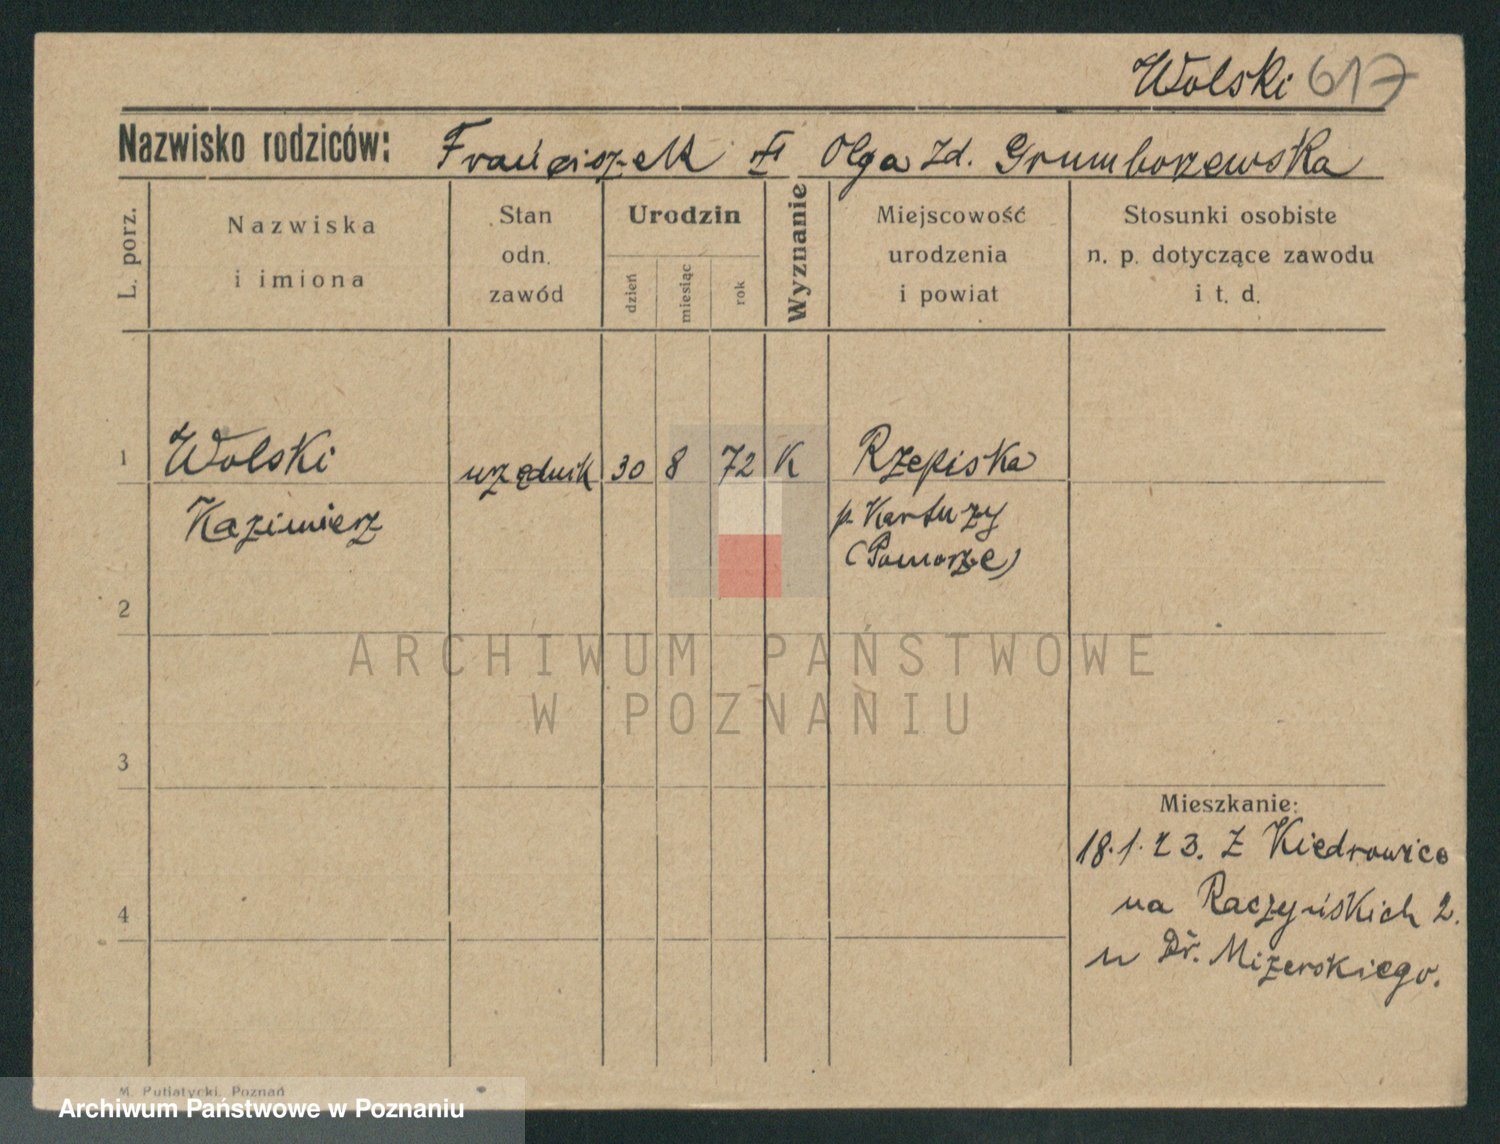 Wolski 617
Nazwisko rodziców: Franciszek i Olga zd. Grumborzewska
L. porz.
Nazwiska
i imiona
Stan
odn.
zawód
Urodzin
dzień
miesiąc
rok
Wyznanie
Miejscowość
urodzenia
i powiat
Stosunki osobiste
n. p. dotyczące zawodu
i t. d.
1 Wolski urzędnik 30 8 72 K Rzepiska
Kazimierz p. Kartuzy
(Pomorze)
2
ARCHIWUM PAŃSTWOWE
W POZNANIU
3
Mieszkanie:
18.1.23. z Kiedrowice
na Raczyńskich 2.
4
u Dr. Mizerskiego.
M. Putiatycki, Poznań
Archiwum Państwowe w Poznaniu